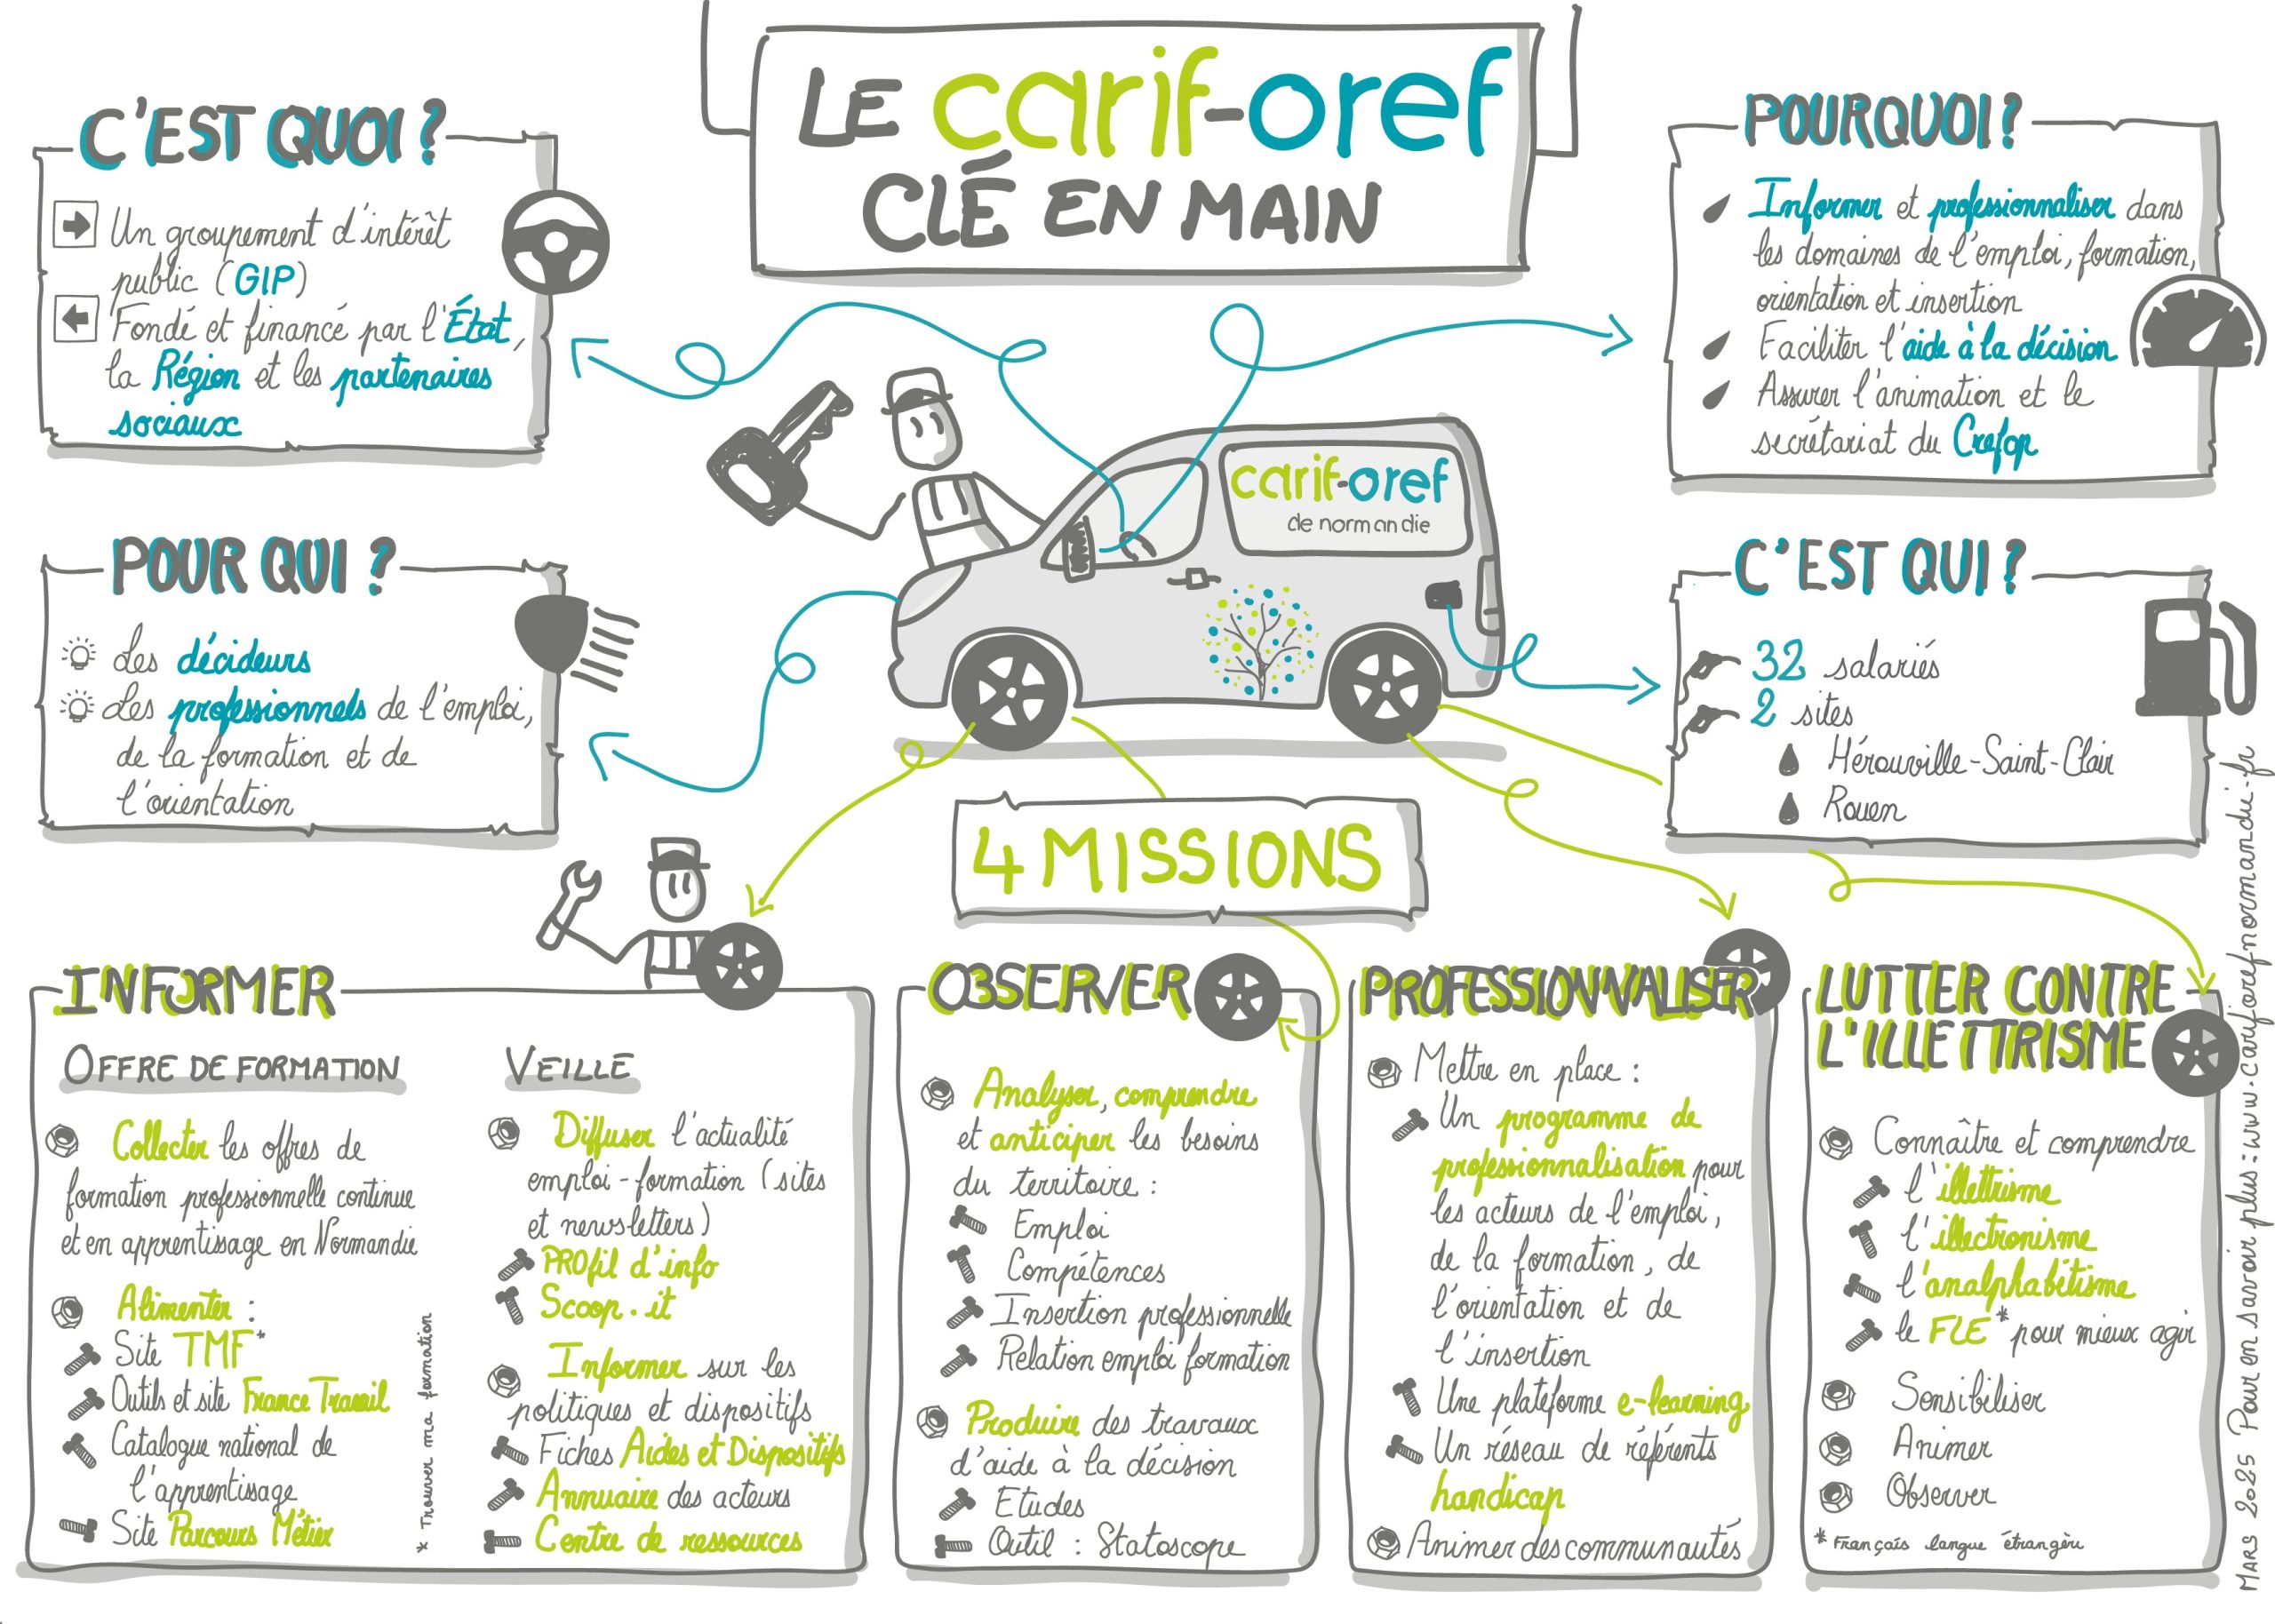 LE carif-oref
CLÉ EN MAIN
C'EST QUOI ?
Un groupement d'intérêt
public (GIP)
Fondé et financé par l'État,
la Région et les partenaires
sociaux
POURQUOI ?
Informer et professionnaliser dans
les domaines de l'emploi, formation,
orientation et insertion
Faciliter l'aide à la décision
Assurer l'animation et le
secrétariat du Crefop
carif-oref
de normandie
POUR QUI ?
Les décideurs
Les professionnels de l'emploi,
de la formation et de
l'orientation
C'EST QUI ?
32 salariés
2 sites
Hérouville-Saint-Clair
Rouen
4 MISSIONS
INFORMER
OFFRE DE FORMATION
Collecter les offres de
formation professionnelle continue
et en apprentissage en Normandie
Alimenter :
Site TMF*
Outils et site France Travail
Catalogue national de
l'apprentissage
Site Parcours Métier
* Trouver ma formation
VEILLE
Diffuser l'actualité
emploi-formation (sites
et newsletters)
PROfil d'info
Scoop.it
Informer sur les
politiques et dispositifs
Fiches Aides et Dispositifs
Annuaire des acteurs
Centre de ressources
OBSERVER
Analyser, comprendre
et anticiper les besoins
du territoire :
Emploi
Compétences
Insertion professionnelle
Relation emploi formation
Produire des travaux
d'aide à la décision
Etudes
Outil : Statoscope
PROFESSIONNALISER
Mettre en place :
Un programme de
professionnalisation pour
les acteurs de l'emploi,
de la formation, de
l'orientation et de
l'insertion
Une plateforme e-learning
Un réseau de référents
handicap
Animer des communautés
LUTTER CONTRE
L'ILLETTRISME
Connaître et comprendre
l'illettrisme
l'illectronisme
l'analphabétisme
le FLE* pour mieux agir
Sensibiliser
Animer
Observer
* Français langue étrangère
MARS 2025 Pour en savoir plus : www.cariforefnormandie.fr